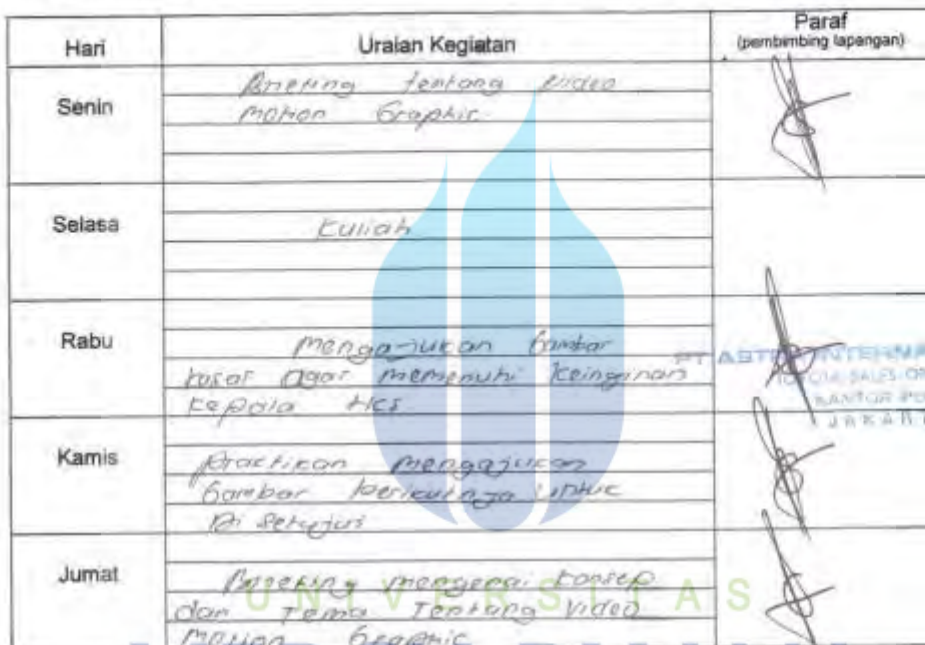 Hari Uraian Kegiatan Paraf
(pembimbing lapangan)
Senin
Briefing tentang video
motion Graphic
Selasa
Kuliah
Rabu
mengajukan Gambar
kasar agar memenuhi keinginan
kepala HCS
Kamis
Practikan mengajukan
Gambar berikutnya untuk
Di Setujui
Jumat
Briefing mengenai konsep
dan Tema Tentang Video
motion Graphic
PT ASTRA INTERNA
KANTOR
JAKAR
UNIVERSITAS